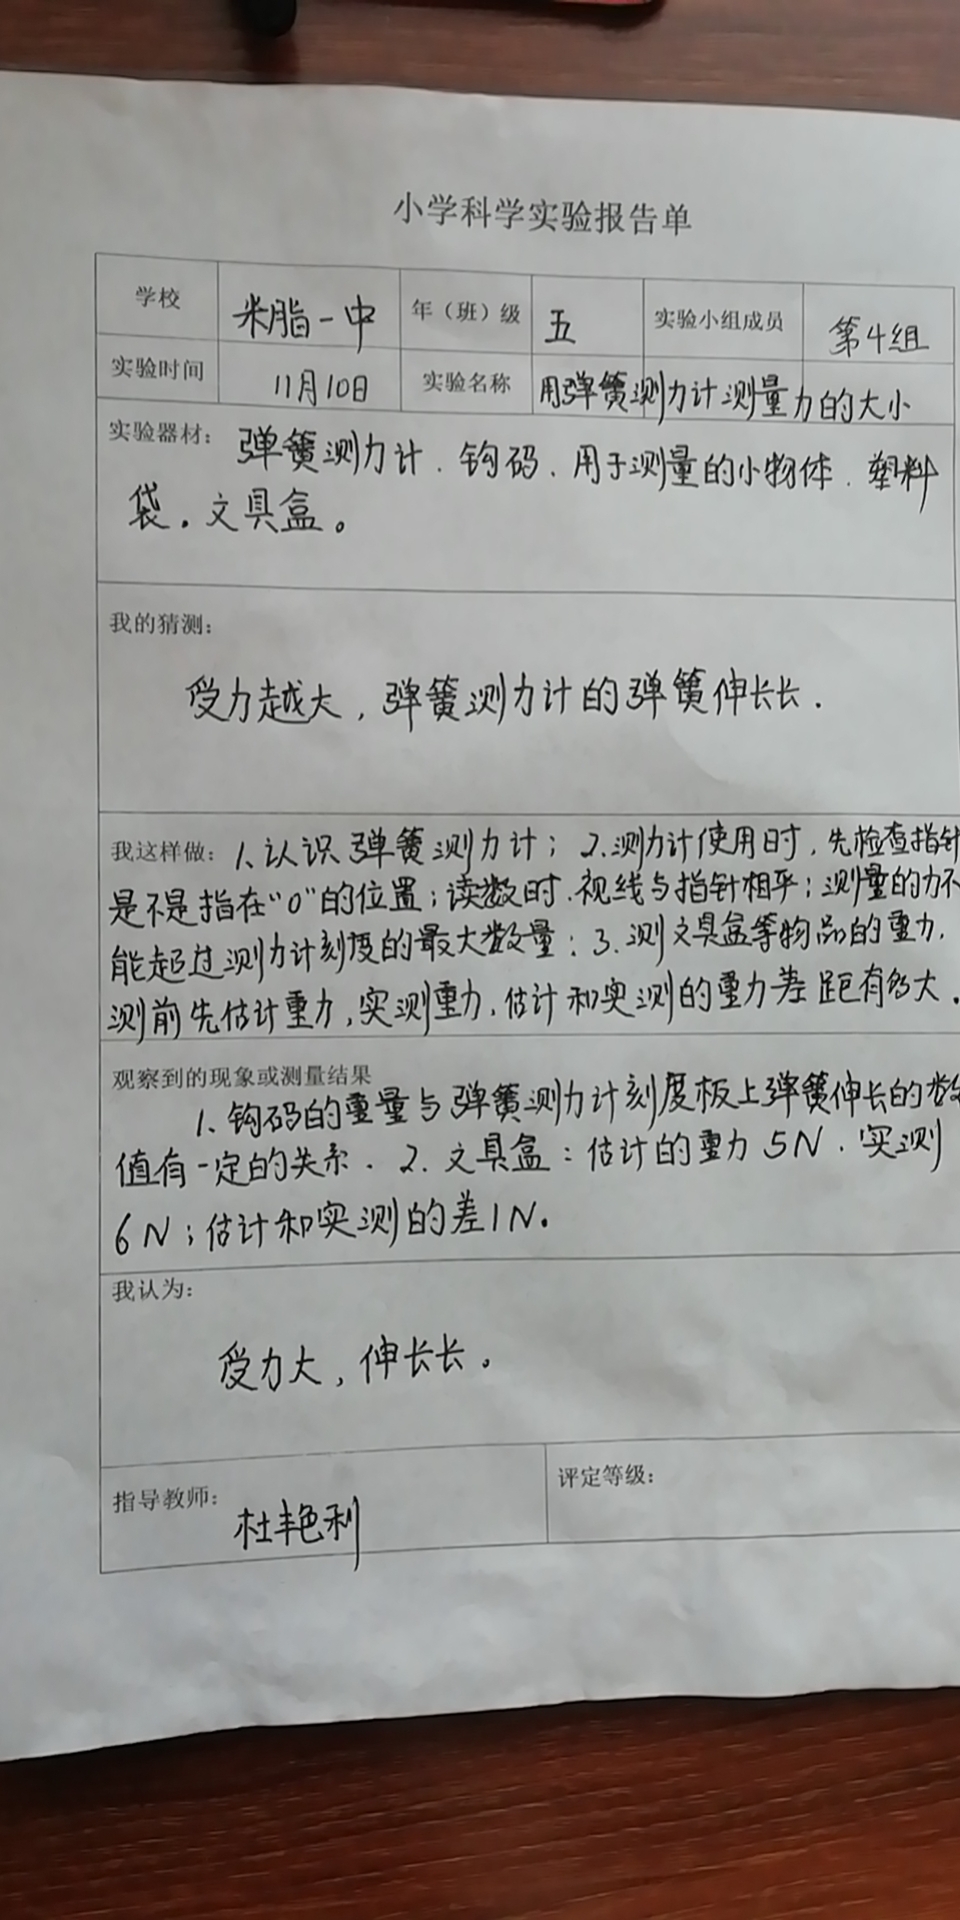 小学科学实验报告单
学校 米脂一中 年（班）级 五 实验小组成员 第4组
实验时间 11月10日 实验名称 用弹簧测力计测量力的大小
实验器材： 弹簧测力计．钩码．用于测量的小物体．塑料
袋．文具盒。
我的猜测：
受力越大，弹簧测力计的弹簧伸长长．
我这样做：1、认识弹簧测力计；2.测力计使用时，先检查指针
是不是指在“0”的位置；读数时．视线与指针相平；测量的力不
能超过测力计刻度的最大数量；3.测文具盒等物品的重力．
测前先估计重力，实测重力，估计和实测的重力差距有多大．
观察到的现象或测量结果
1、钩码的重量与弹簧测力计刻度板上弹簧伸长的数
值有一定的关系．2．文具盒：估计的重力5N．实测
6N；估计和实测的差1N。
我认为：
受力大，伸长长。
指导教师： 杜艳利 评定等级：